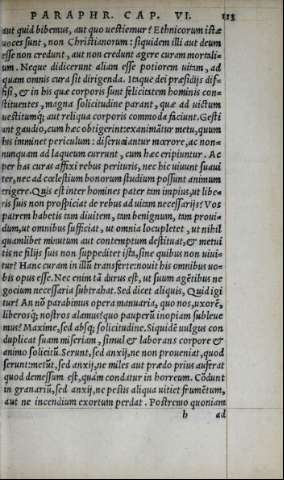 PARAPHR. CAP. VI. 113
aut quid bibemus, aut quo uestiemur? Ethnicorum istæ
uoces sunt, non Christianorum: siquidem illi aut deum
esse non credunt, aut non credunt agere curam mortaliũ
um. Neque didicerunt aliam esse potiorem uitam, ad
quam omnis cura sit dirigenda. Itaque dei præsidijs dif-
fisi, & in his quæ corporis sunt felicitatem hominis con-
stituentes, magna solicitudine parant, quæ ad uictum
uestitumq; aut reliqua corporis commoda faciunt. Gesti
ant gaudio, cum hæc obtigerint: exanimãtur metu, quum
his imminet periculum: discruciantur mœrore, ac non-
nunquam ad laqueum currunt, cum hæc eripiuntur. Ac
per has curas affixi rebus perituris, nec hic uiuunt suaui
ter, nec ad cœlestium bonorum studium possunt animum
erigere. Quis est inter homines pater tam impius, ut libe-
ris suis non prospiciat de rebus ad uitam necessarijs? Vos
patrem habetis tam diuitem, tam benignum, tam proui-
dum, ut omnibus sufficiat, ut omnia locupletet, ut nihil
quamlibet minutum aut contemptum destituat, & metui
tis ne filijs suis non suppeditet ista, sine quibus non uiui-
tur? Hanc curam in illũ transferte: nouit his omnibus uo-
bis opus esse. Nec enim tã durus est, ut suum agẽtibus ne
gocium necessaria subtrahat. Sed dicet aliquis, Quid igi
tur? An nõ parabimus opera manuaria, quo nos, uxorẽ,
liberosq; nostros alamus? quo pauperũ inopiam subleue
mus? Maxime, sed absq; solicitudine. Siquidẽ uulgus con
duplicat suam miseriam, simul & laborans corpore &
animo solicitũ. Serunt, sed anxij, ne non proueniat, quod
serunt: metũt, sed anxij, ne miles aut prædo prius auferat
quod demessum est, quàm condatur in horreum. Cõdunt
in granariũ, sed anxij, ne pestis aliqua uitiet frumẽtum,
aut ne incendium exortum perdat. Postremo quoniam
h ad